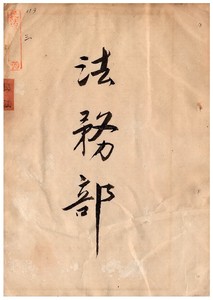 法務部